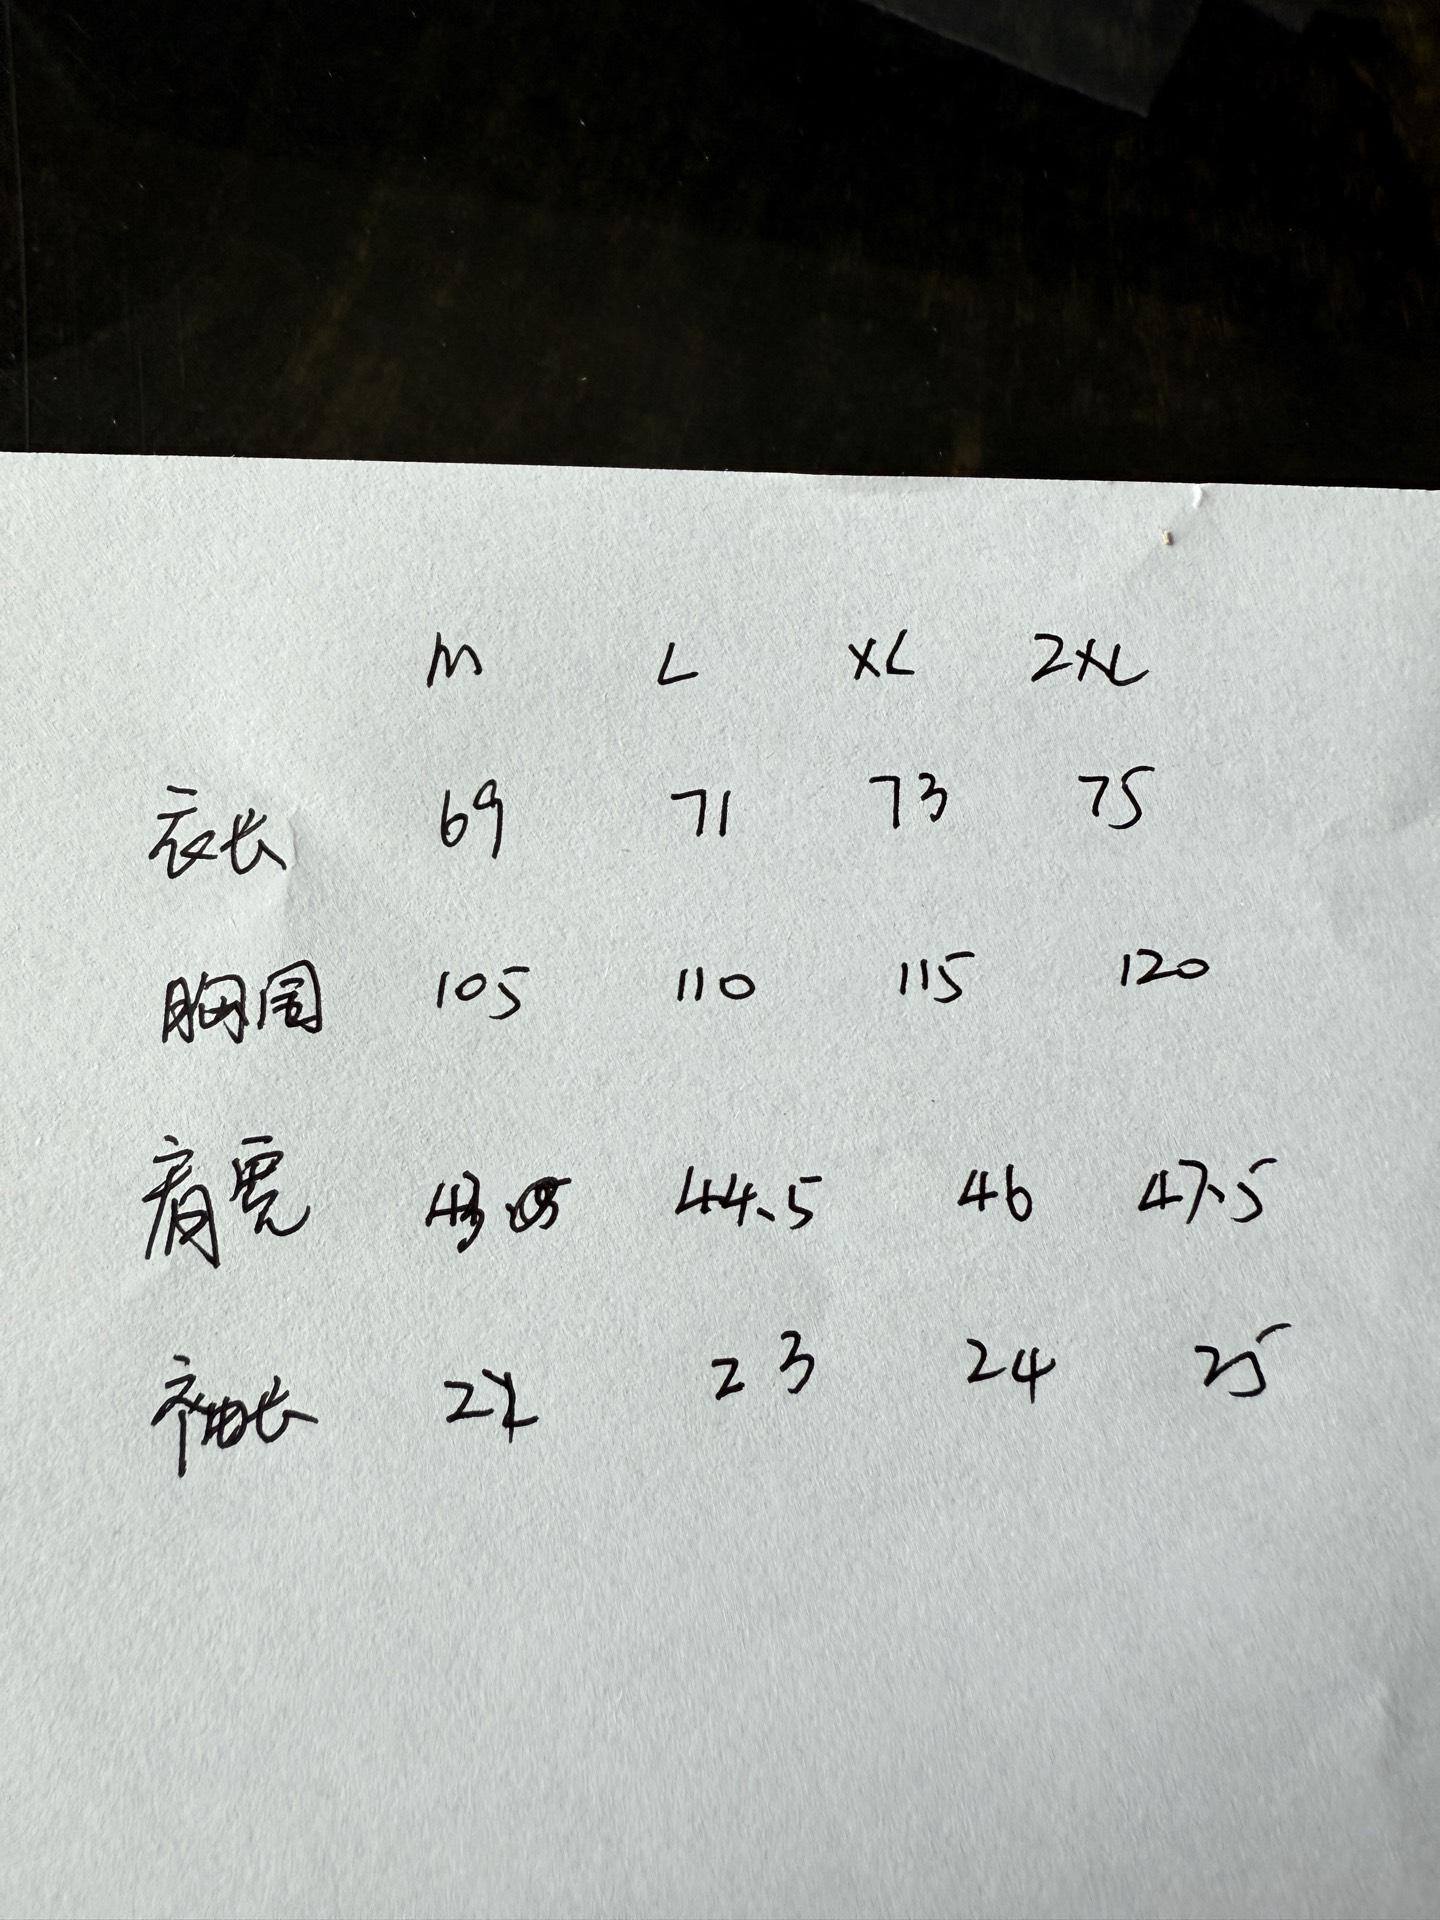 M L XL 2XL
衣长 69 71 73 75
胸围 105 110 115 120
肩宽 44.5 46 47.5
袖长 22 23 24 25